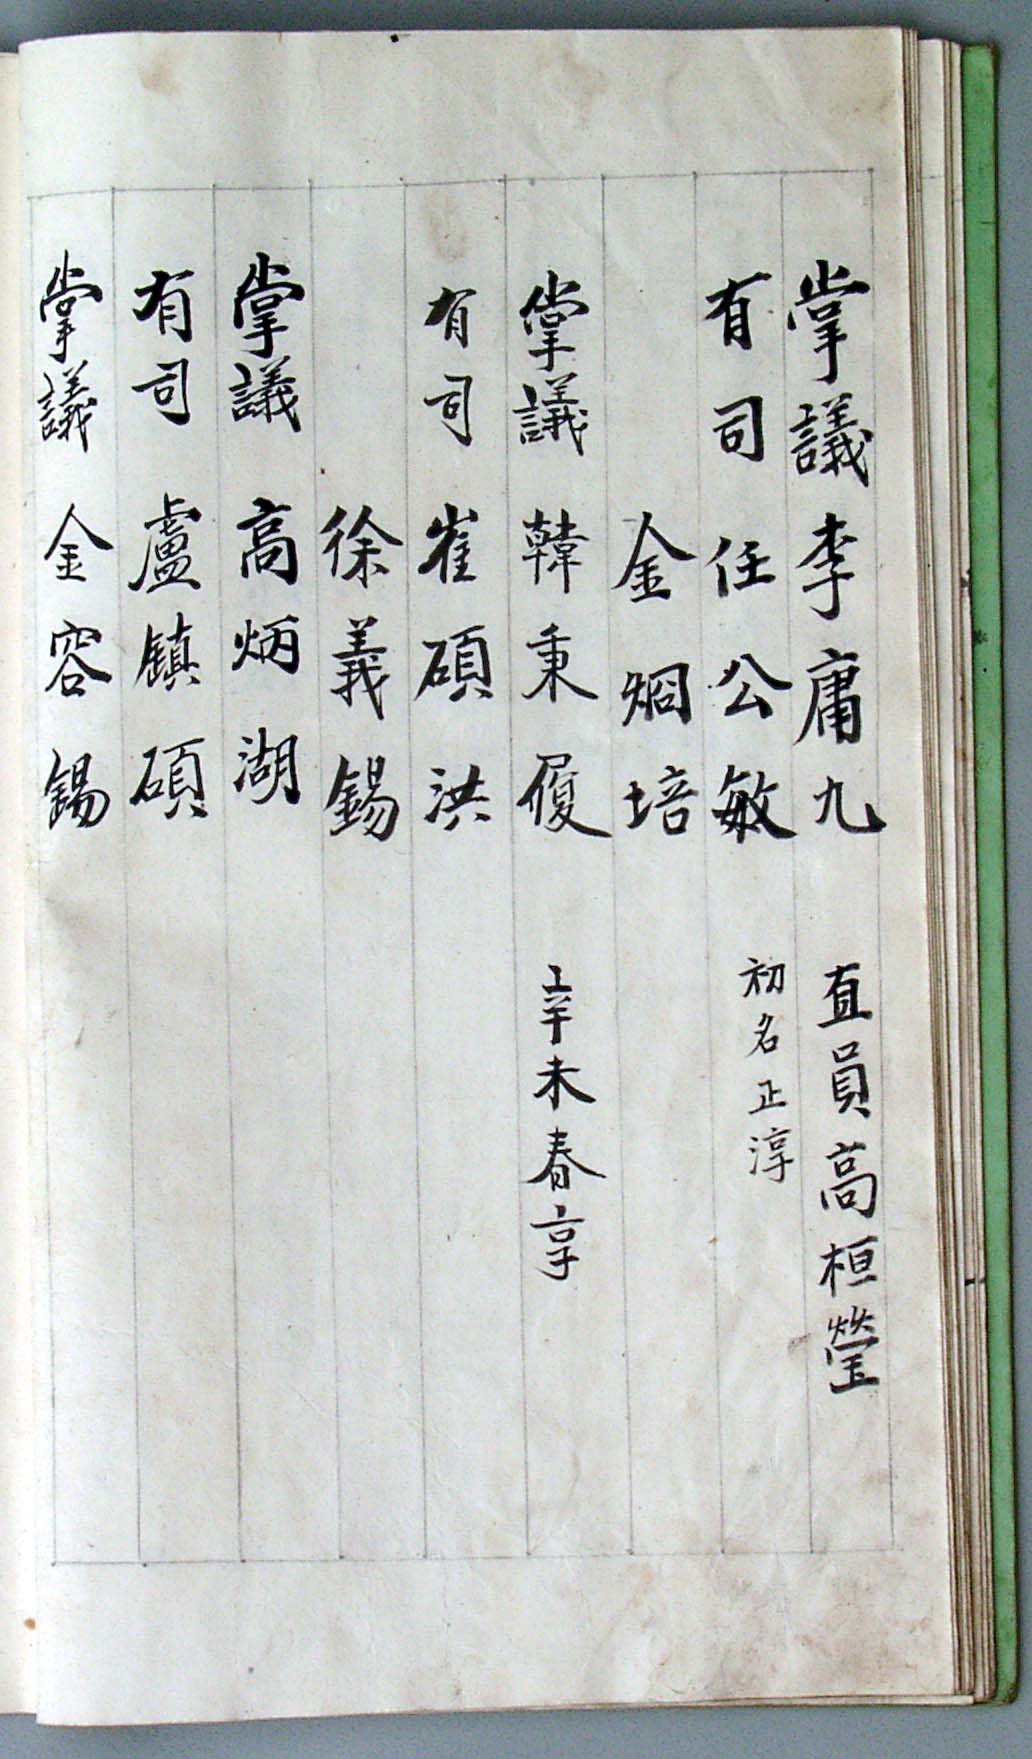 掌議 李庸九 直員高桓瑩
有司 任公敏 初名正淳
金烱培
掌議 韓秉履 辛未春享
有司 崔碩洪
徐義錫
掌議 高炳湖
有司 盧鎭碩
掌議 金容錫